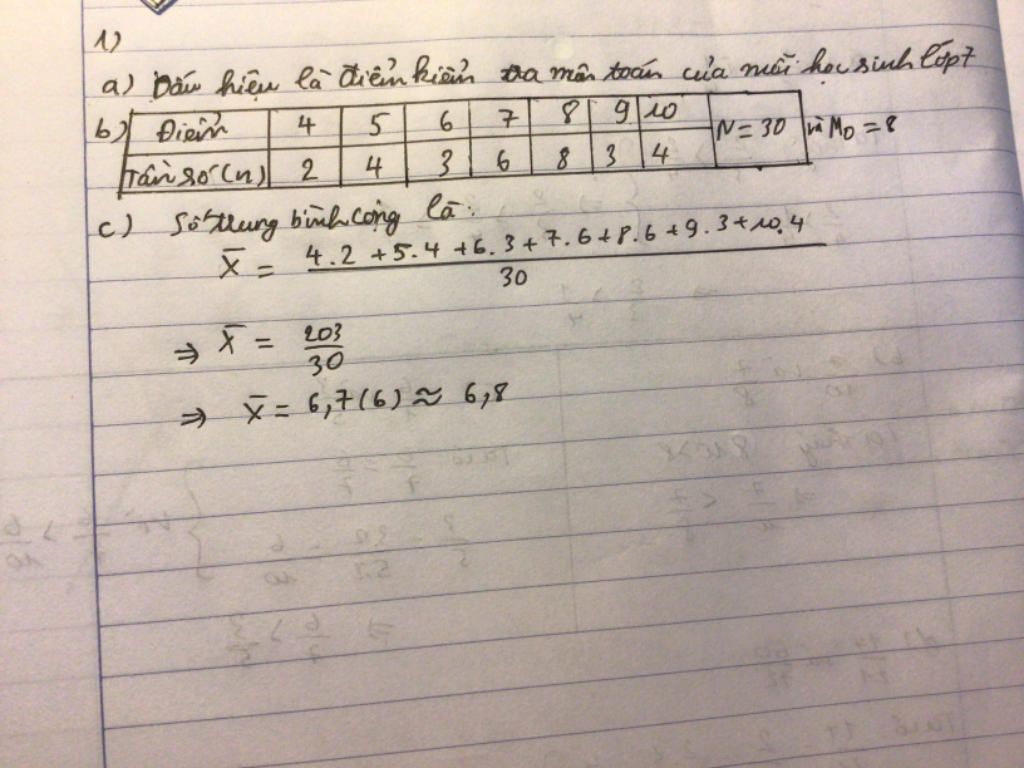 1)
a) Dấu hiệu là điểm kiểm tra môn toán của mỗi học sinh lớp 7
b) Điểm 4 5 6 7 8 9 10 N = 30 và M0 = 8
Tần số (n) 2 4 3 6 8 3 4
c) Số trung bình cộng là:
X̄ = 4.2 + 5.4 + 6.3 + 7.6 + 8.6 + 9.3 + 10.4
30
⇒ X̄ = 203
30
⇒ X̄ = 6,7(6) ≈ 6,8